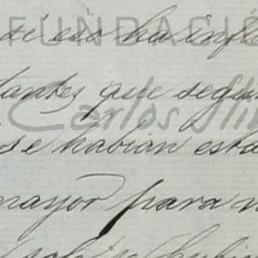 FUNDACIÓ
si eso ha influ
tantes que segu
Carlos Slim
se habian esta
mayor para